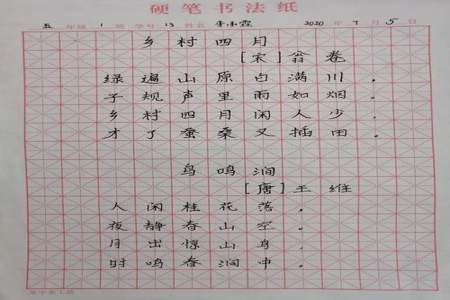 硬笔书法纸
五 年级 1 班 学号 13 姓名 李 2020 年 7 月 5 日
乡村四月
[宋]翁卷
绿遍山原白满川。
子规声里雨如烟。
乡村四月闲人少。
才了蚕桑又插田。
鸟鸣涧
[唐]王维
人闲桂花落。
夜静春山空。
月出惊山鸟。
时鸣春涧中。